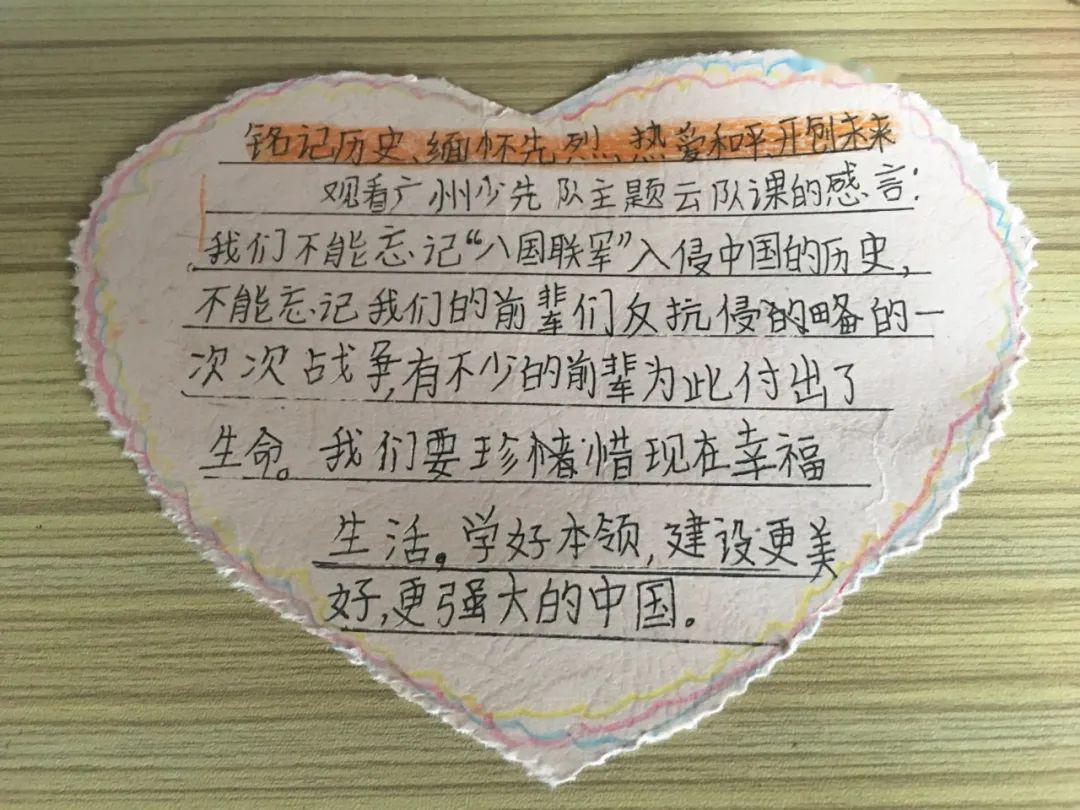 铭记历史、缅怀先烈、热爱和平、开创未来
观看广州少先队主题云队课的感言:
我们不能忘记“八国联军”入侵中国的历史,
不能忘记我们的前辈们反抗侵的略的一
次次战争,有不少的前辈为此付出了
生命。我们要珍惜现在幸福
生活。学好本领,建设更美
好,更强大的中国。